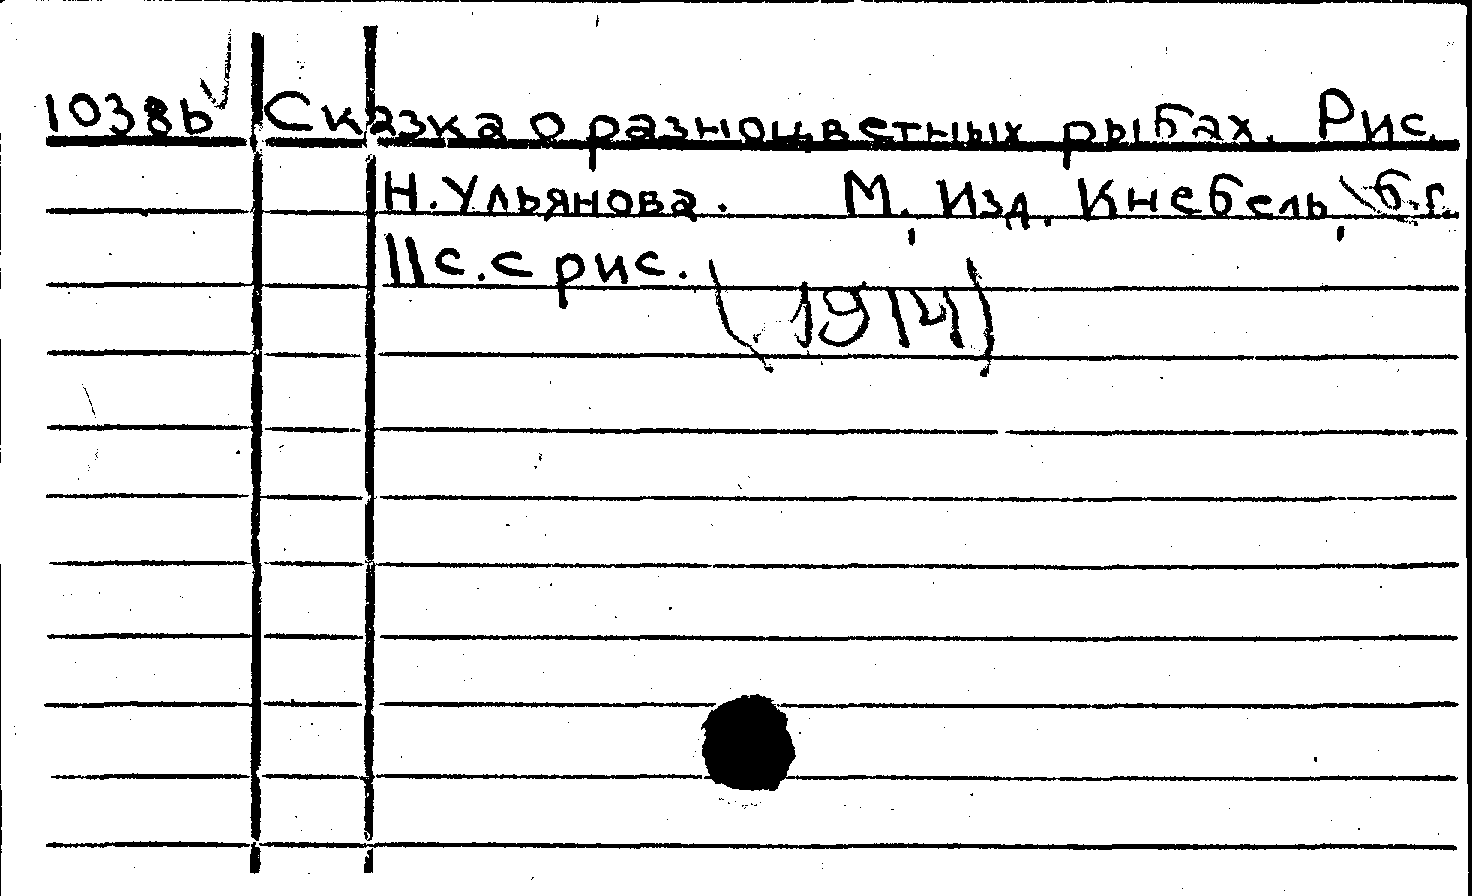 1038b Сказка о разноцветных рыбах. Рис.
Н. Ульянова. М., Изд. Кнебель, б.г.
11 с. с рис.
(1914)